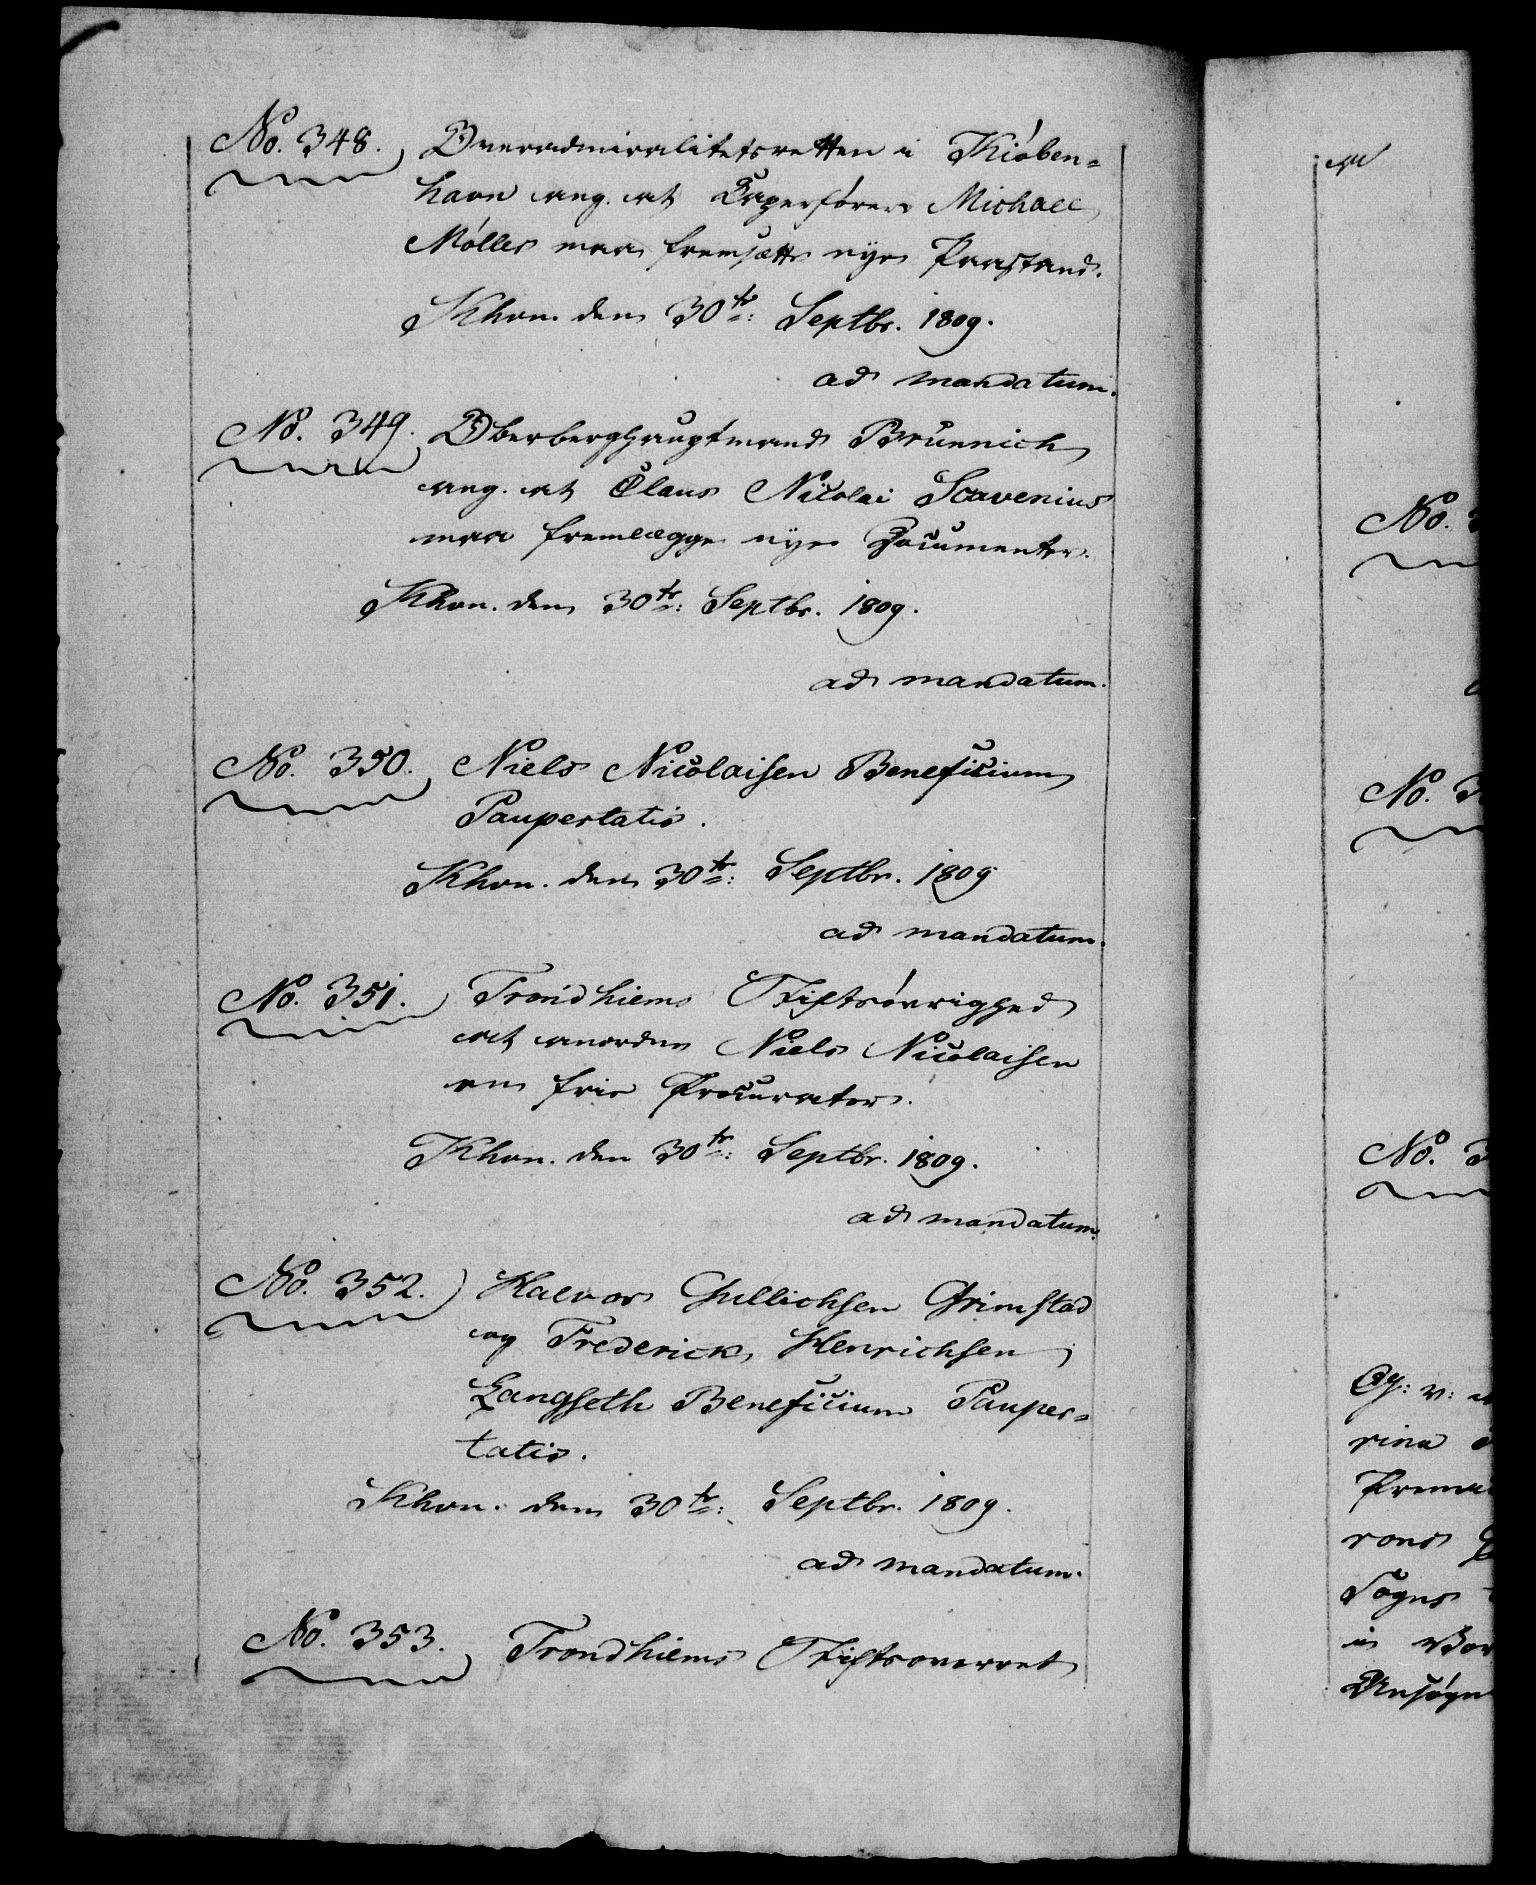 No. 348. Overadmiralitetsretten i Kióben=
havn ang. at Caperfórer Michael
Móller maa fremsætte nye Paastand.
Khvn. den 30te: Septbr. 1809.
ad mandatum.
No. 349. Oberberghauptmand Brünnich
ang. at Claus Nicolai Scavenius
maa fremlægge nye Documenter.
Khvn. den 30te: Septbr. 1809.
ad mandatum.
No. 350. Niels Nicolaisen Beneficium
Paupertatis.
Khvn. den 30te: Septbr. 1809
ad mandatum.
No. 351. Trondhiems Stiftsóvrighed
at anordne Niels Nicolaisen
en frie Procurator.
Khvn. den 30te: Septbr. 1809.
ad mandatum.
No. 352. Halvor Gullichsen Grimstad
og Frederick Henrichsen
Langseth Beneficium Pauper=
tatis.
Khvn. den 30te: Septbr. 1809.
ad mandatum.
No. 353. Trondhiems Stiftsoverret
No.
No. 3
No. 3
rina
Sogns
i
Ansógn